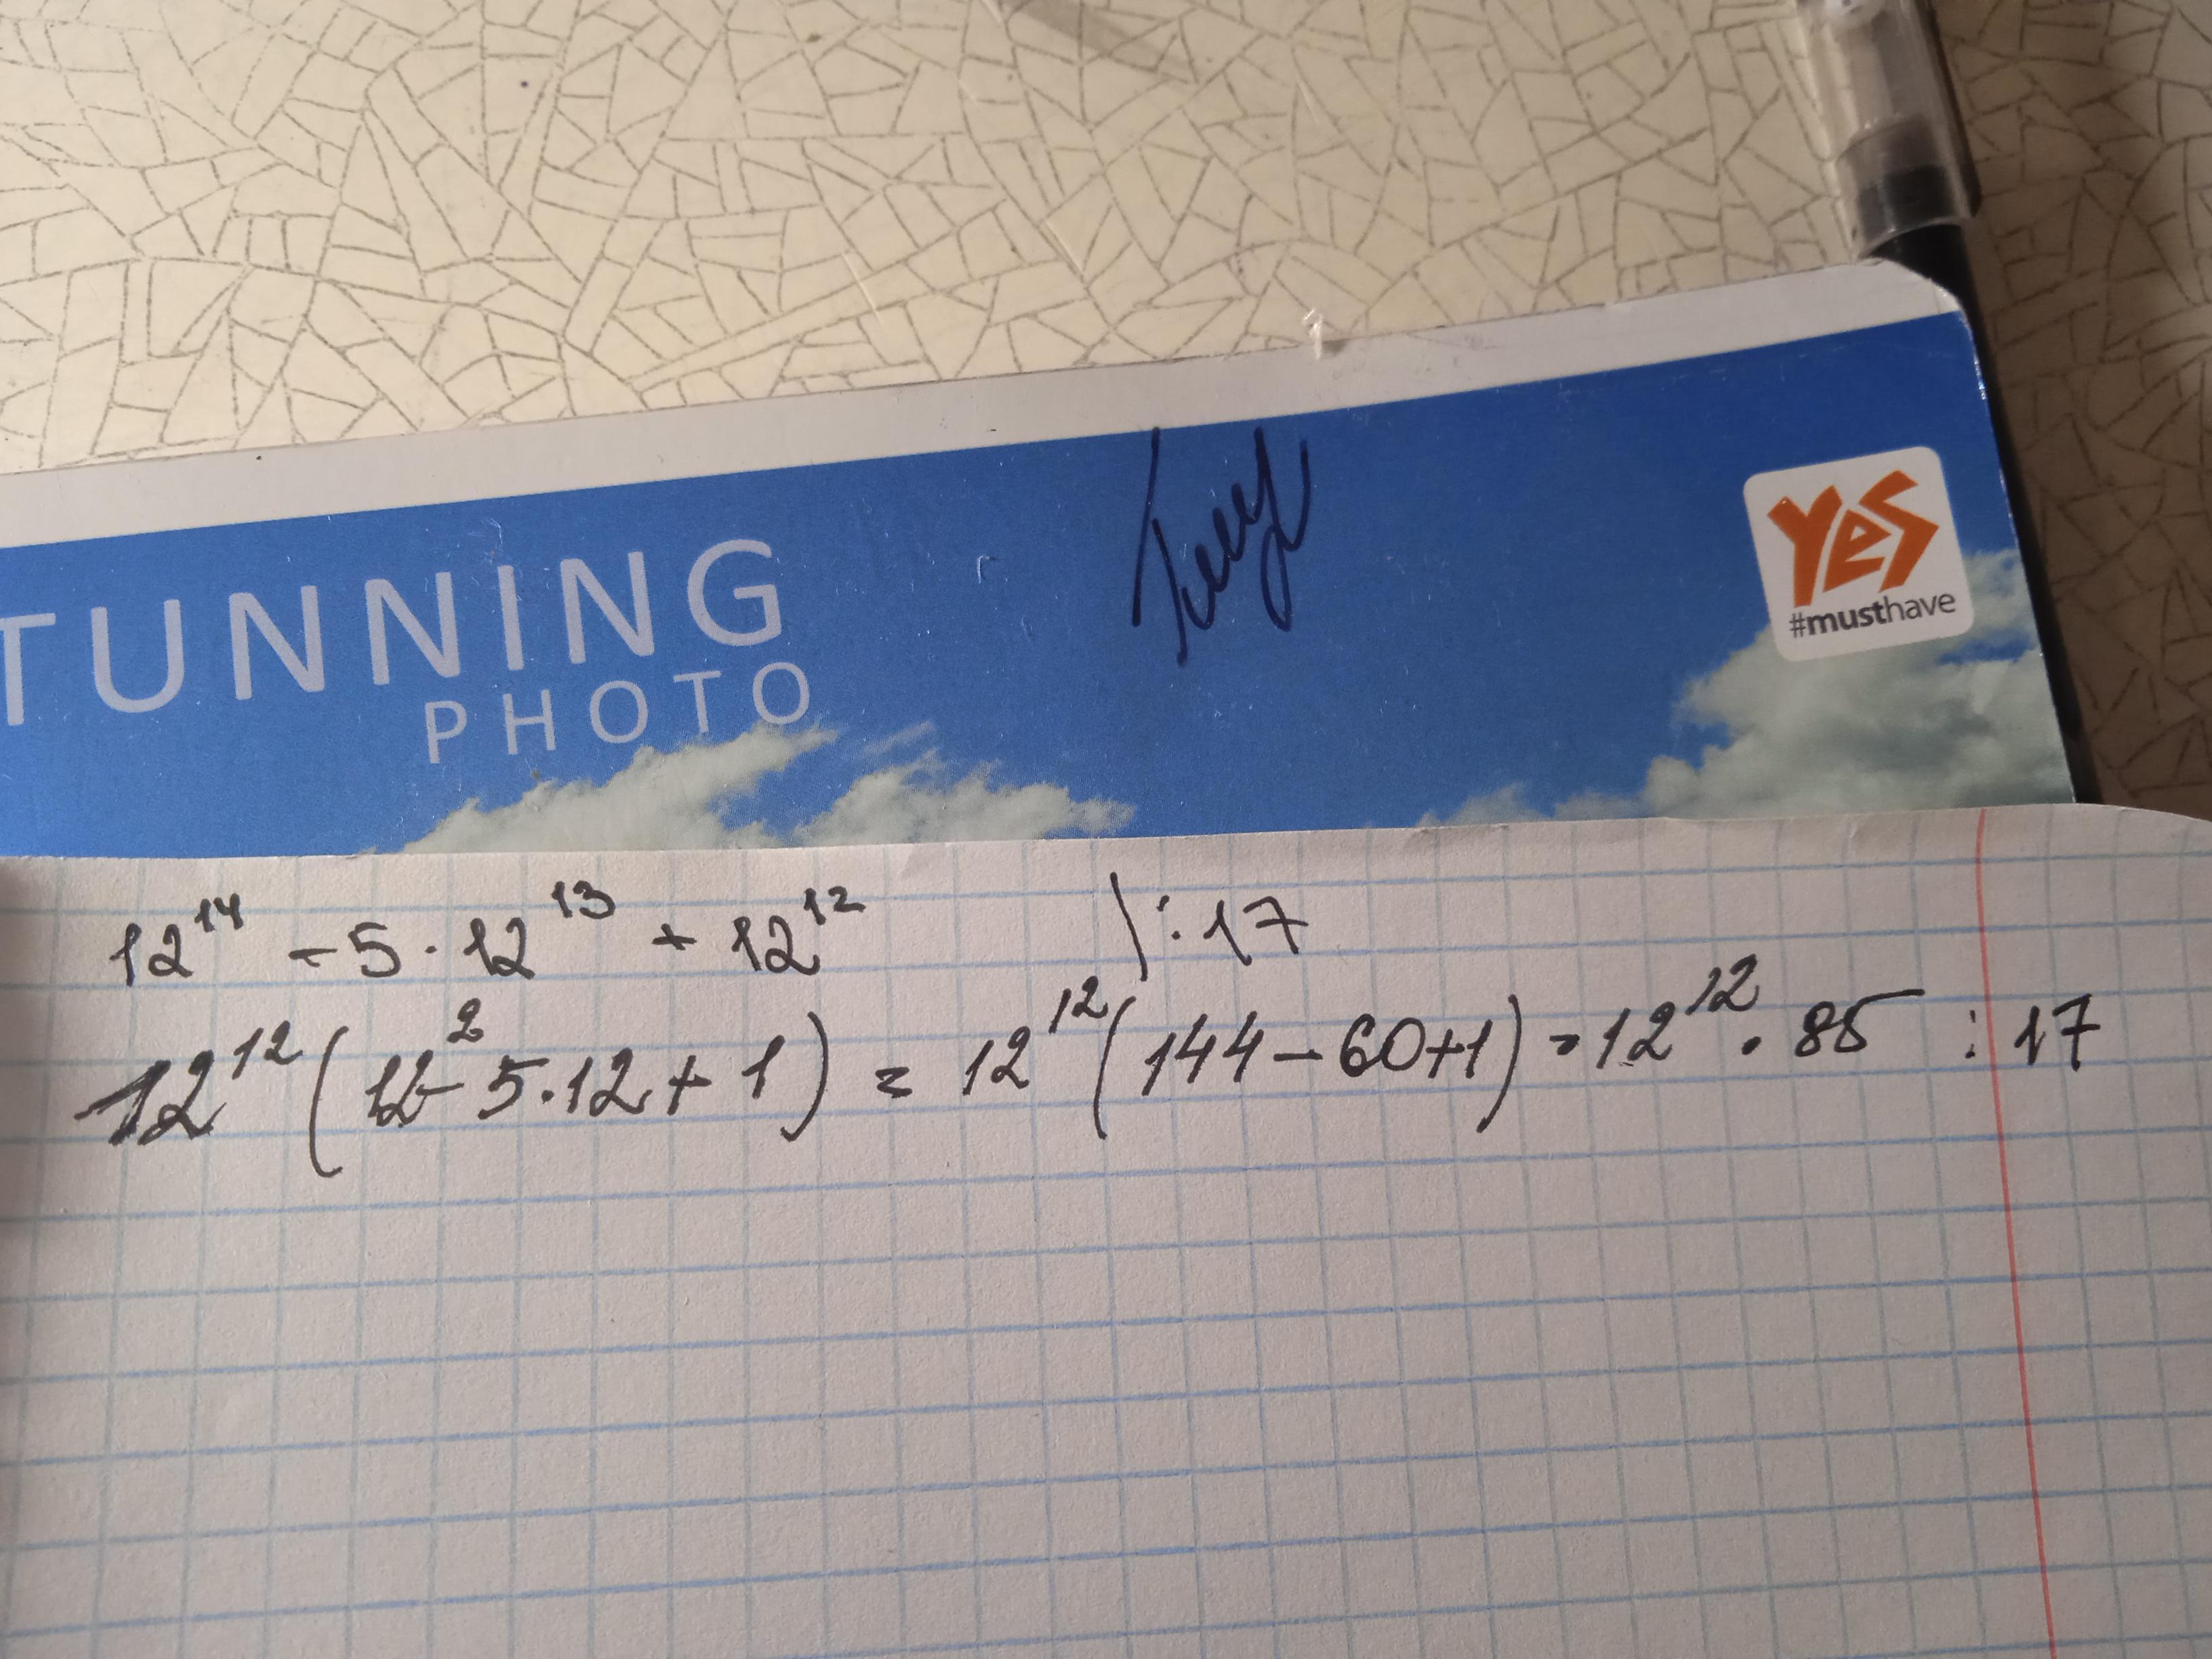 TUNNING
PHOTO
YES
#musthave
12¹⁴ - 5 · 12¹³ + 12¹² | : 17
12¹² (12² - 5·12 + 1) = 12¹² (144 - 60 + 1) = 12¹² · 85 : 17